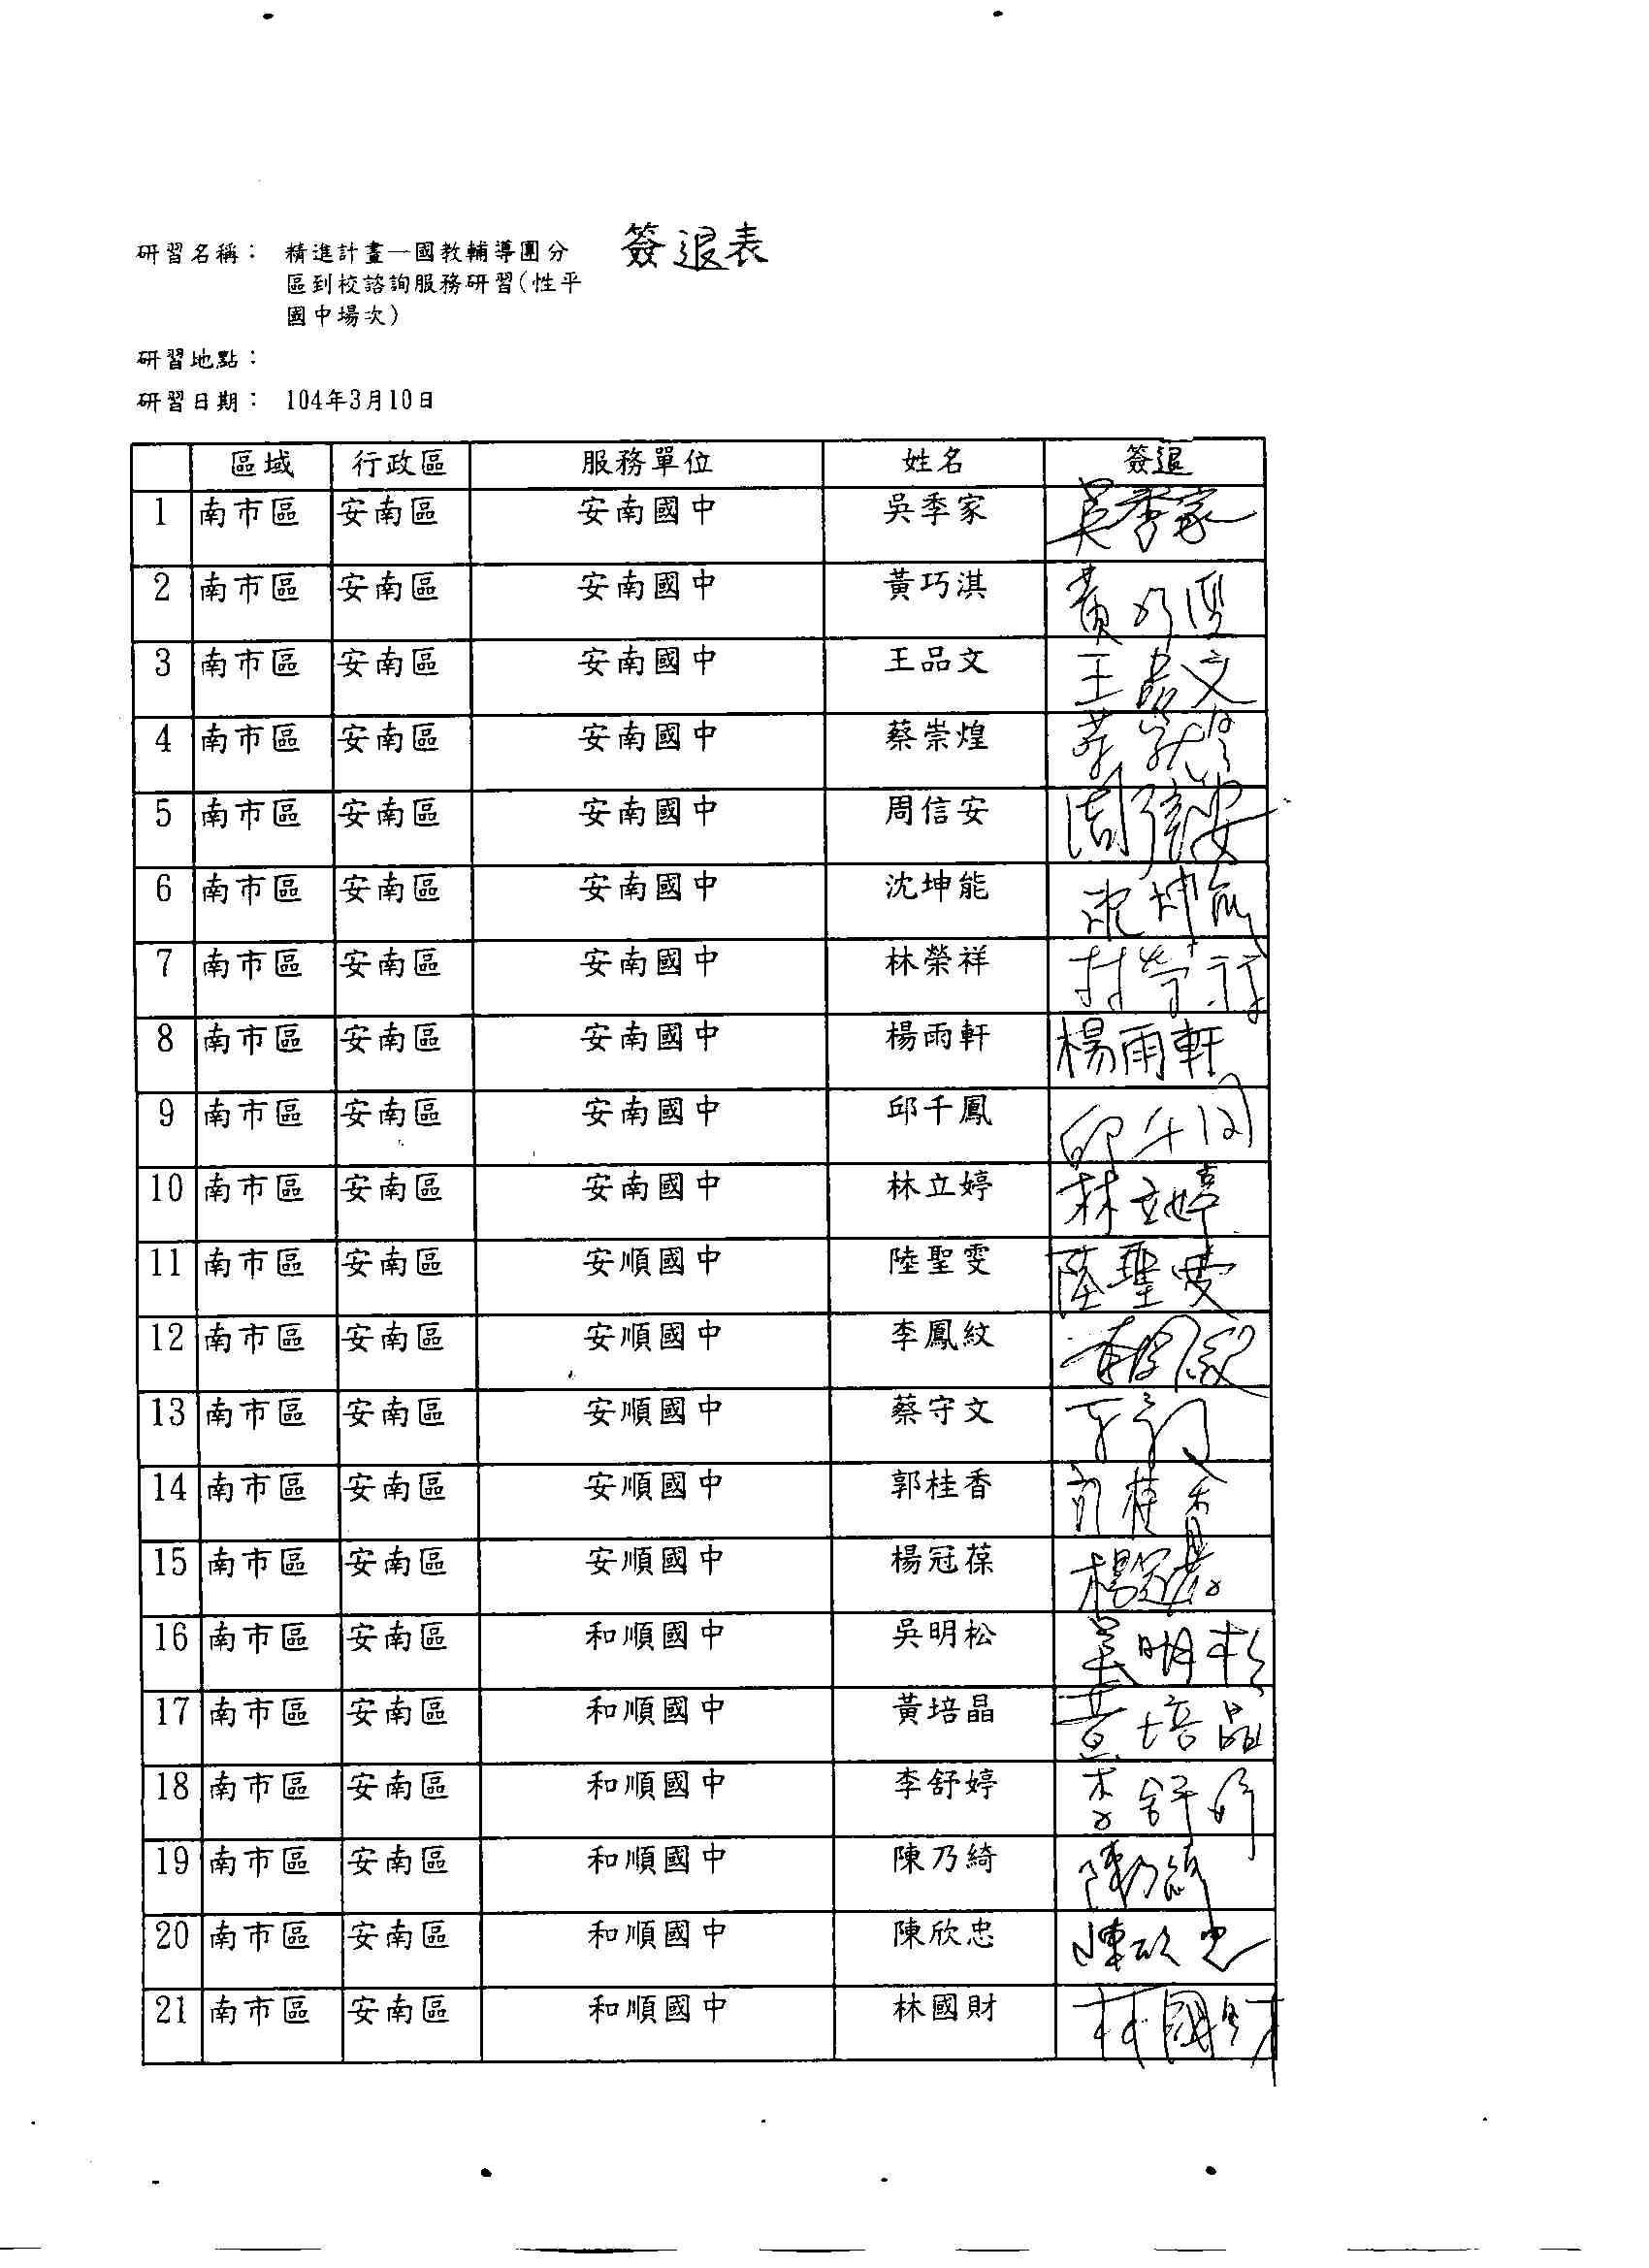 簽退表
研習名稱： 精進計畫—國教輔導團分
區到校諮詢服務研習(性平
國中場次)
研習地點：
研習日期： 104年3月10日
區域 行政區 服務單位 姓名 簽退
1 南市區 安南區 安南國中 吳季家 吳季家
2 南市區 安南區 安南國中 黃巧淇 黃巧淇
3 南市區 安南區 安南國中 王品文 王品文
4 南市區 安南區 安南國中 蔡崇煌
5 南市區 安南區 安南國中 周信安 周信安
6 南市區 安南區 安南國中 沈坤能 沈坤能
7 南市區 安南區 安南國中 林榮祥 林榮祥
8 南市區 安南區 安南國中 楊雨軒 楊雨軒
9 南市區 安南區 安南國中 邱千鳳 邱千鳳
10 南市區 安南區 安南國中 林立婷 林立婷
11 南市區 安南區 安順國中 陸聖雯 陸聖雯
12 南市區 安南區 安順國中 李鳳紋
13 南市區 安南區 安順國中 蔡守文
14 南市區 安南區 安順國中 郭桂香 郭桂香
15 南市區 安南區 安順國中 楊冠葆 楊冠葆
16 南市區 安南區 和順國中 吳明松 吳明松
17 南市區 安南區 和順國中 黃培晶 黃培晶
18 南市區 安南區 和順國中 李舒婷 李舒婷
19 南市區 安南區 和順國中 陳乃綺 陳乃綺
20 南市區 安南區 和順國中 陳欣忠 陳欣忠
21 南市區 安南區 和順國中 林國財 林國財